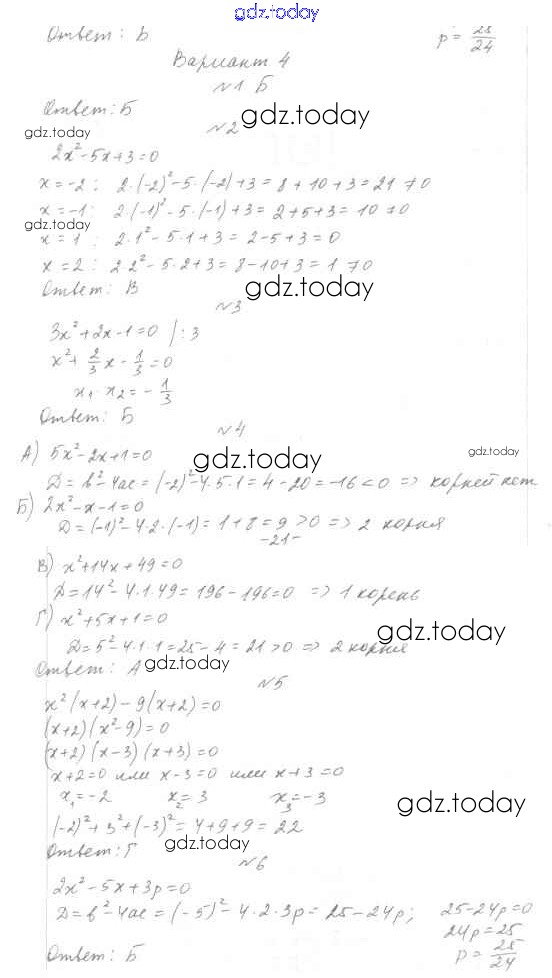 gdz.today
Ответ: Б p = 25/24
Вариант 4
№1 Б
Ответ: Б
gdz.today
gdz.today
№2
2x² - 5x + 3 = 0
x = -2 : 2·(-2)² - 5·(-2) + 3 = 8 + 10 + 3 = 21 ≠ 0
x = -1 : 2·(-1)² - 5·(-1) + 3 = 2 + 5 + 3 = 10 ≠ 0
gdz.today
x = 1 : 2·1² - 5·1 + 3 = 2 - 5 + 3 = 0
x = 2 : 2·2² - 5·2 + 3 = 8 - 10 + 3 = 1 ≠ 0
Ответ: В
gdz.today
№3
3x² + 2x - 1 = 0 | : 3
x² + 2/3 x - 1/3 = 0
x₁ · x₂ = - 1/3
Ответ: Б
№4
А) 5x² - 2x + 1 = 0
gdz.today
gdz.today
D = b² - 4ac = (-2)² - 4·5·1 = 4 - 20 = -16 < 0 => корней нет
Б) 2x² - x - 1 = 0
D = (-1)² - 4·2·(-1) = 1 + 8 = 9 > 0 => 2 корня
-21-
В) x² + 14x + 49 = 0
D = 14² - 4·1·49 = 196 - 196 = 0 => 1 корень
Г) x² + 5x + 1 = 0
gdz.today
D = 5² - 4·1·1 = 25 - 4 = 21 > 0 => 2 корня
Ответ: А
gdz.today
№5
x² (x+2) - 9(x+2) = 0
(x+2)(x² - 9) = 0
(x+2)(x-3)(x+3) = 0
x+2=0 или x-3=0 или x+3=0
x₁ = -2 x₂ = 3 x₃ = -3
gdz.today
(-2)² + 3² + (-3)² = 4 + 9 + 9 = 22
gdz.today
Ответ: Г
№6
2x² - 5x + 3p = 0
D = b² - 4ac = (-5)² - 4·2·3p = 25 - 24p; 25 - 24p = 0
24p = 25
Ответ: Б p = 25/24
gdz.today